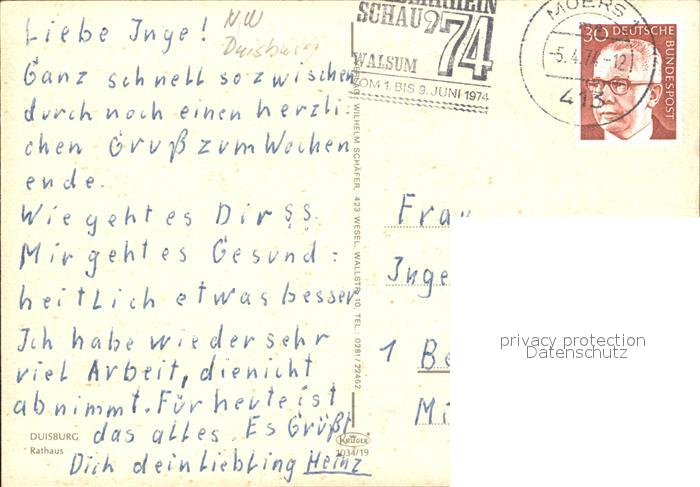 Liebe Inge!
NW
Duisburg
Ganz schnell so zwischen
durch noch einen herzli-
chen Gruß zum Wochen
ende.
Wie geht es Dir
Mir geht es Gesund =
heitlich etwas besser
Ich habe wieder sehr
viel Arbeit, die nicht
abnimmt. Für heute ist
das alles. Es Grüßt
Dich dein Liebling Heinz
DUISBURG
Rathaus
KRÜGER
1034/19
WILHELM SCHÄFER, 423 WESEL, WALLSTR. 10, TEL.: 0281/22462
SCHAU 74
WALSUM
VOM 1. BIS 9. JUNI 1974
MOERS 1
-5.4.74-12
413
30 DEUTSCHE
BUNDESPOST
Frau
Inge
1 Be
Mi
privacy protection
Datenschutz